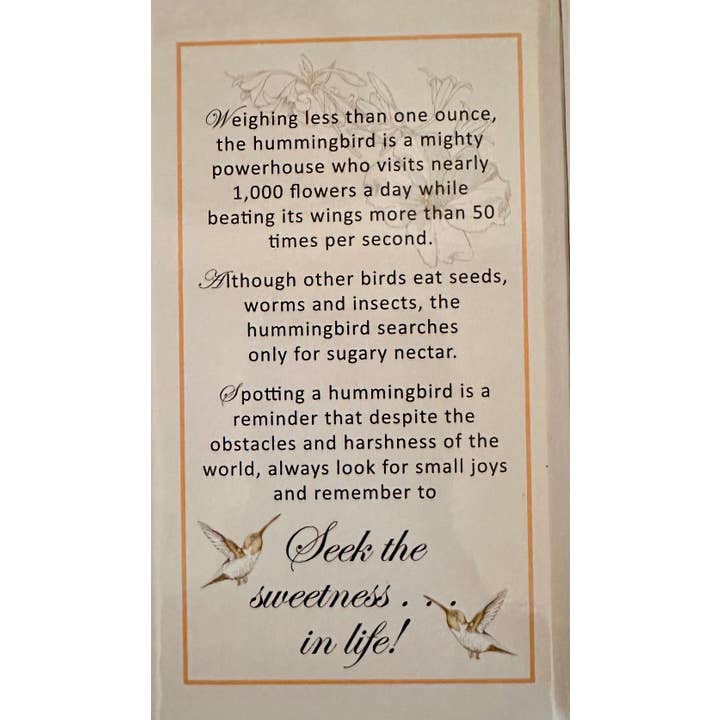 Weighing less than one ounce,
the hummingbird is a mighty
powerhouse who visits nearly
1,000 flowers a day while
beating its wings more than 50
times per second.
Although other birds eat seeds,
worms and insects, the
hummingbird searches
only for sugary nectar.
Spotting a hummingbird is a
reminder that despite the
obstacles and harshness of the
world, always look for small joys
and remember to
Seek the
sweetness . . .
in life!